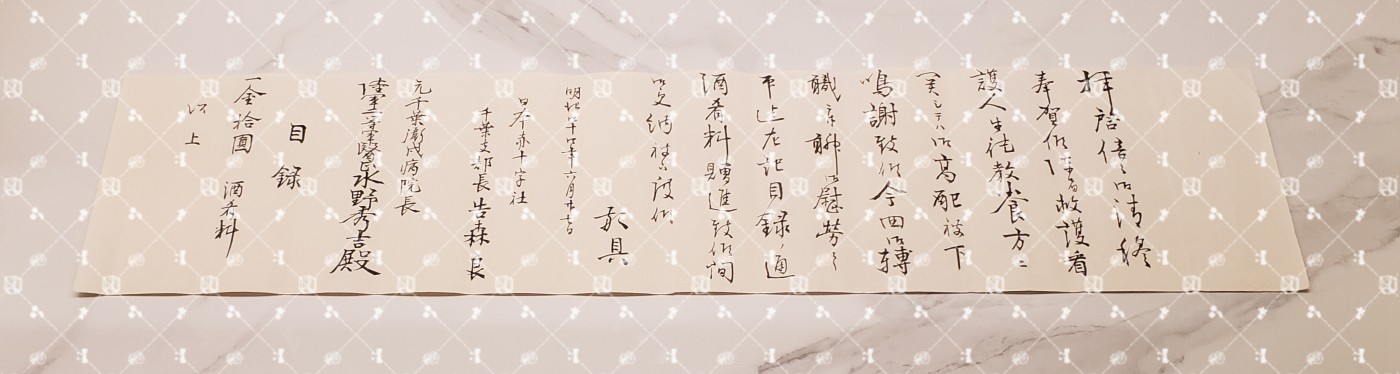 拝啓陳ハ御清穆
奉賀候陳者救護看
護人生徒教養方ニ
関シテハ御高配被下
鳴謝致候今回御転
職ニ際聊御慰労之
印迄左記目録ノ通
酒肴料贈進致候間
御受納被下度候
敬具
明治三十四年六月廿七日
日本赤十字社
千葉支部長 告森 良
元千葉衛戍病院長
陸軍一等軍醫 永野秀吉殿
目録
一金拾圓 酒肴料
以上